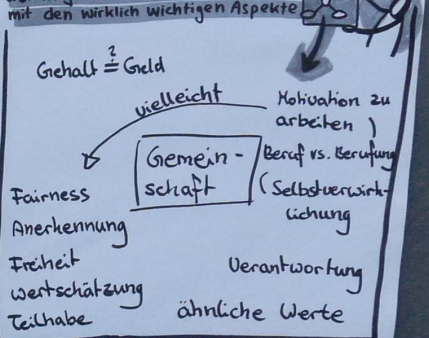 mit den wirklich wichtigen Aspekte
Gehalt ≟ Geld
vielleicht
Motivation zu
arbeiten )
Beruf vs. Berufung
(Selbstverwirk-
lichung
Gemein-
schaft
Fairness
Anerkennung
Freiheit
Wertschätzung
Teilhabe
Verantwortung
ähnliche Werte